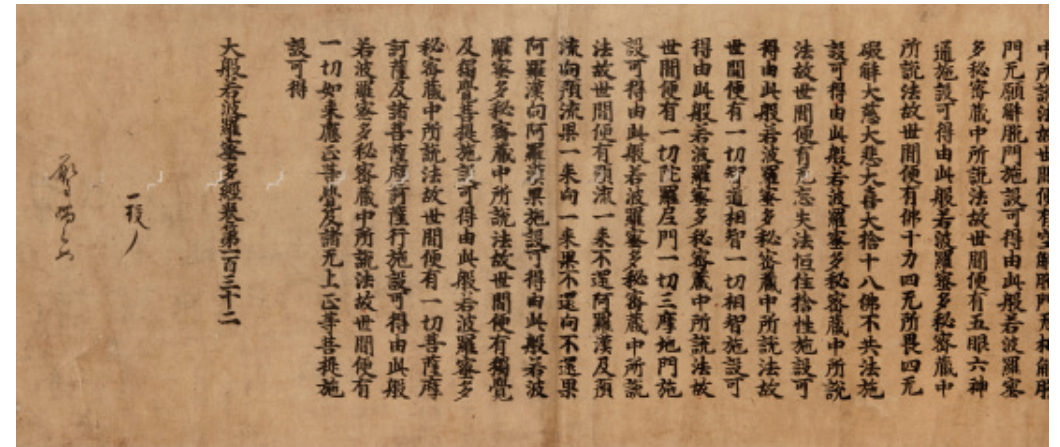 中所說法故世間便有空解脫門无相解脫
門无願解脫門施設可得由此般若波羅蜜
多秘密藏中所說法故世間便有五眼六神
通施設可得由此般若波羅蜜多秘密藏中
所說法故世間便有佛十力四无所畏四无
礙解大慈大悲大喜大捨十八佛不共法施
設可得由此般若波羅蜜多秘密藏中所說
法故世間便有无忘失法恒住捨性施設可
得由此般若波羅蜜多秘密藏中所說法故
世間便有一切智道相智一切相智施設可
得由此般若波羅蜜多秘密藏中所說法故
世間便有一切陀羅尼門一切三摩地門施
設可得由此般若波羅蜜多秘密藏中所說
法故世間便有預流一来不還阿羅漢及預
流向預流果一来向一来果不還向不還果
阿羅漢向阿羅漢果施設可得由此般若波
羅蜜多秘密藏中所說法故世間便有獨覺
及獨覺菩提施設可得由此般若波羅蜜多
秘密藏中所說法故世間便有一切菩薩摩
訶薩及諸菩薩摩訶薩行施設可得由此般
若波羅蜜多秘密藏中所說法故世間便有
一切如来應正等覺及諸无上正等菩提施
設可得
大般若波羅蜜多經卷第一百三十二
一校了